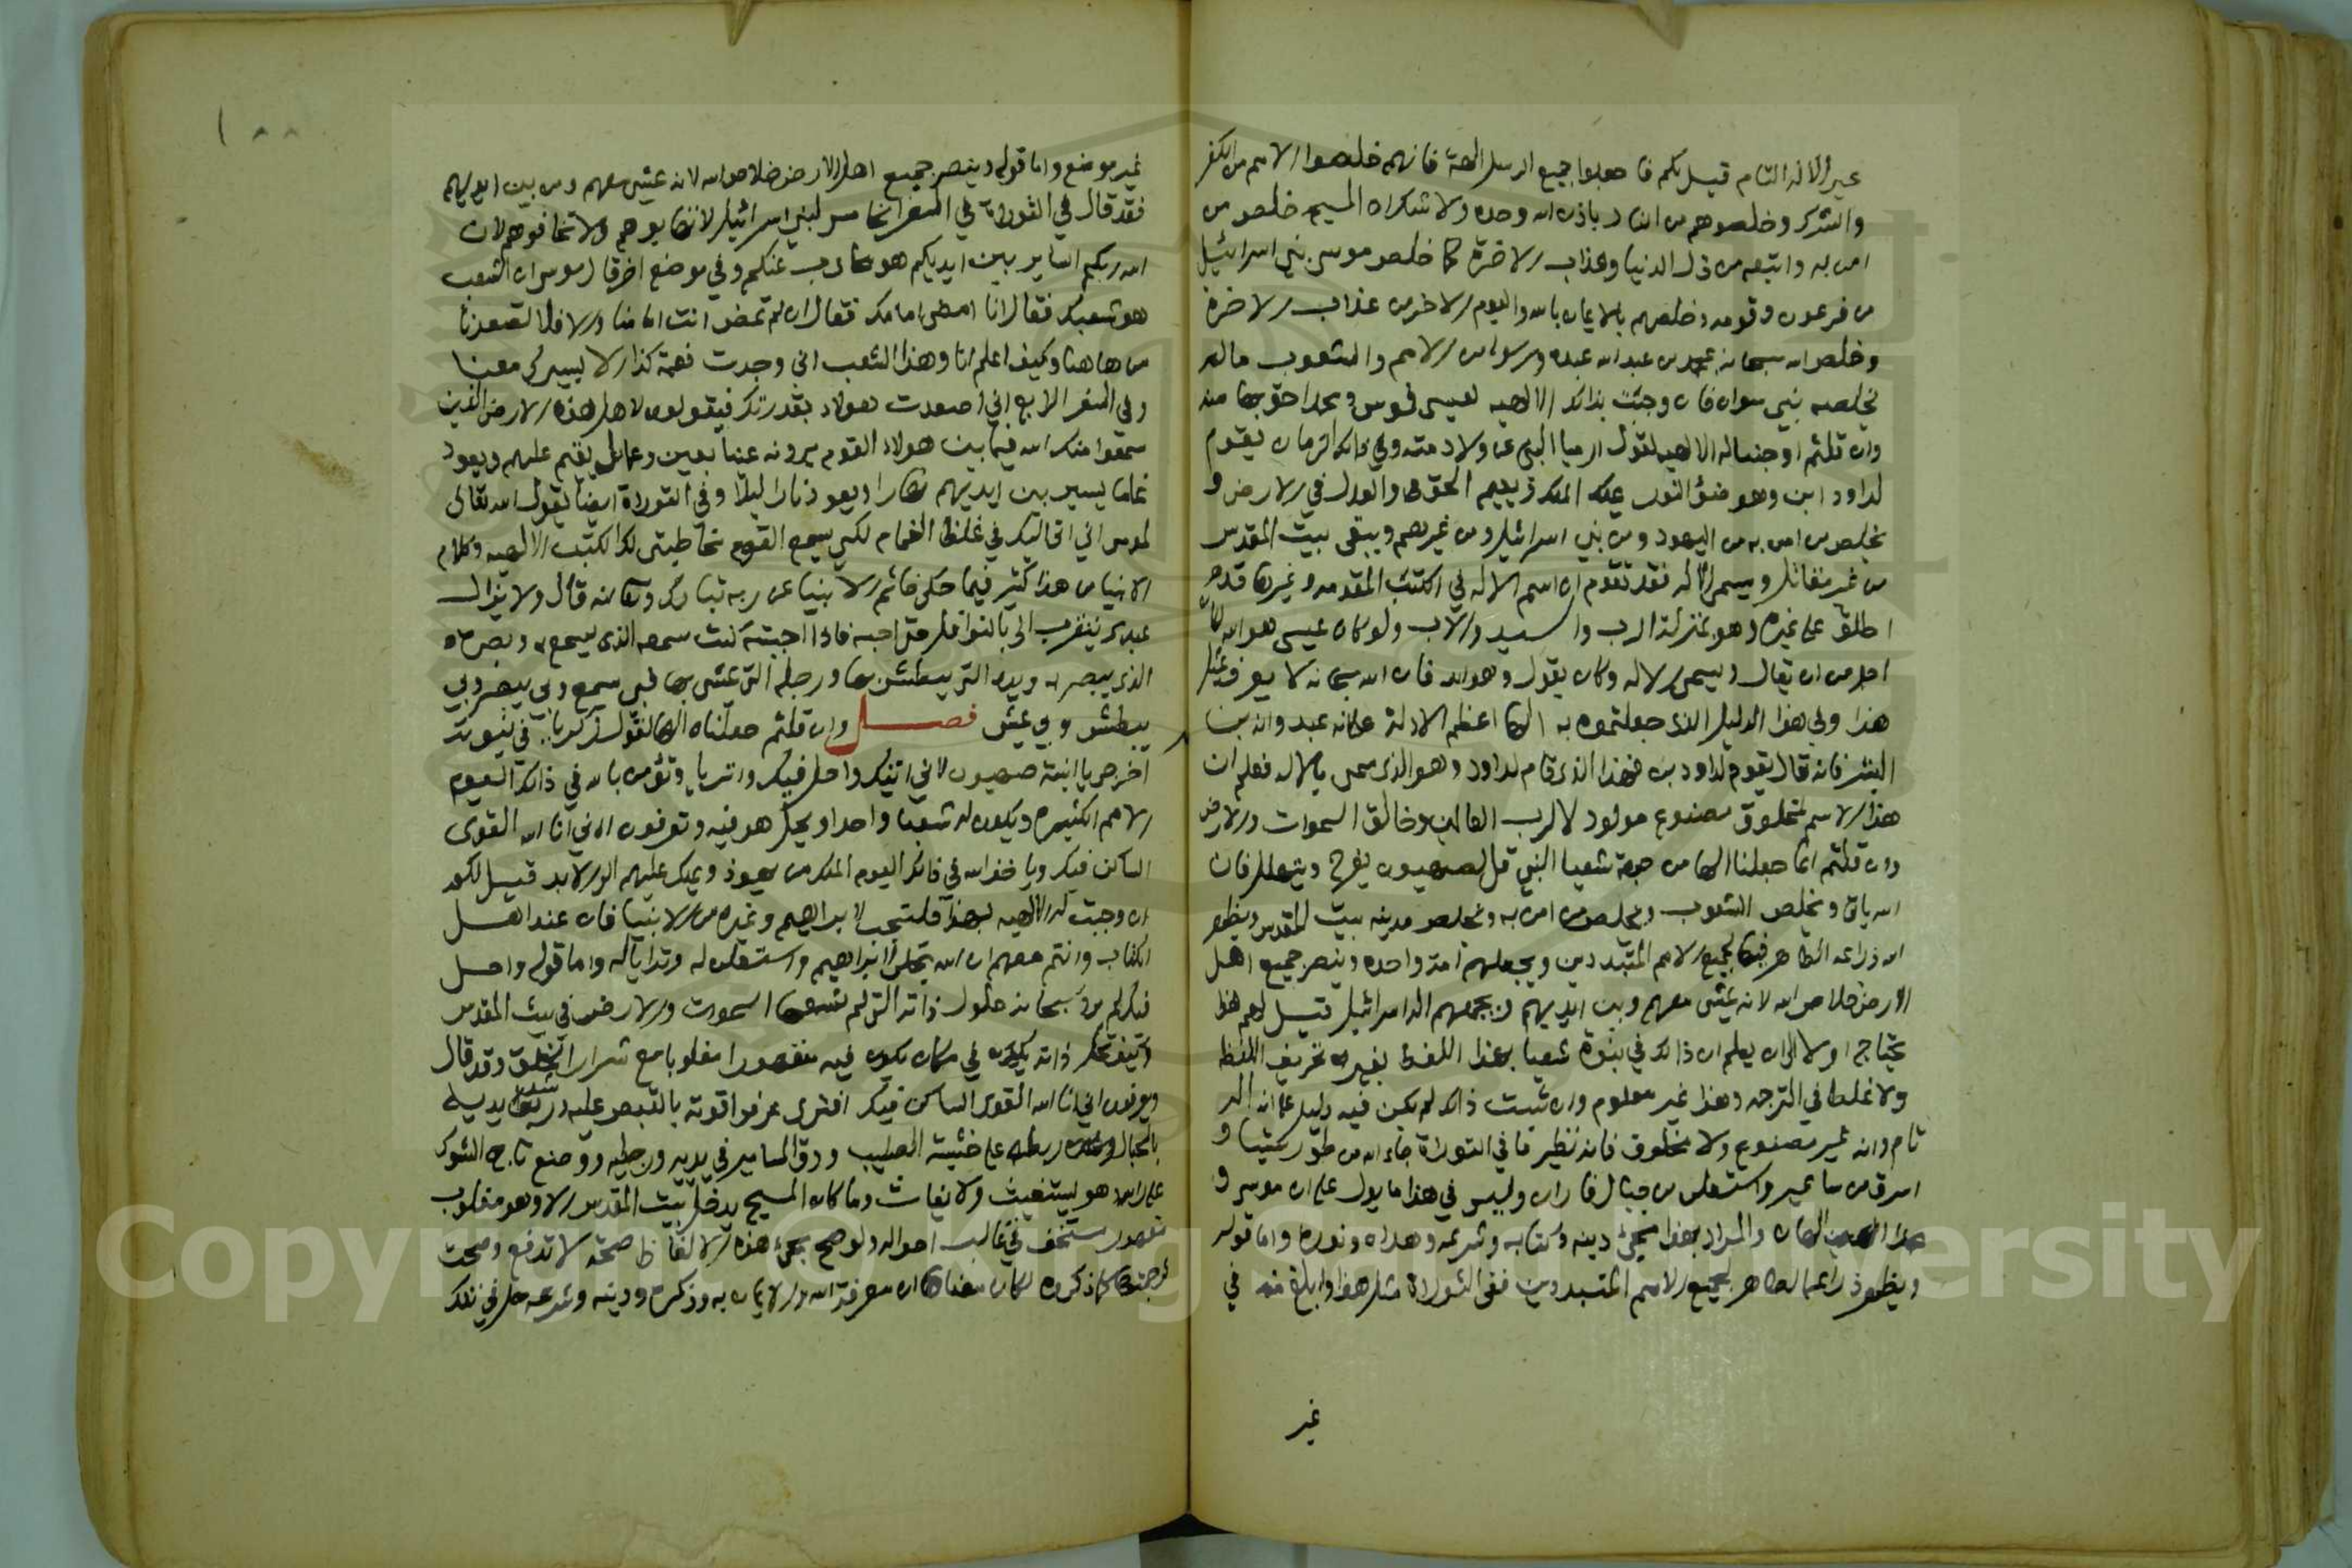 غير الاله التام قيل لكم فاجعلوا جميع الرسل الهة فانهم خلصوا الامم من الكفر
والشرك وخلصوهم من النار باذن الله وحده ولا شك ان المسيح خلص من
امن به واتبعه من ذل الدنيا وعذاب الاخرة كما خلص موسى بني اسرائيل
من فرعون وقومه وخلصهم بالايمان بالله واليوم الاخر من عذاب الاخرة
وخلص الله سبحانه بمحمد بن عبد الله عبده ورسوله من الامم والشعوب ما لم
يخلصه نبي سواه فان وجبت بذلك الالهيه لعيسى فموسى ومحمد احق بها منه
وان قلتم اوجبنا له الالهيه لقول ارميا النبي عن ولادته وفي ذلك الزمان يقوم
لداود ابن وهو ضوء النور يملك الملك ويقيم الحق والعدل في الارض و
يخلص من امن به من اليهود ومن بني اسرائيل ومن غيرهم ويبقى بيت المقدس
من غير مقاتل ويسمى الاله فقد تقدم ان اسم الاله في الكتب المقدمه وغيرها قد
اطلق على غيره وهو بمنزلة الرب والسيد والاب ولو كان عيسى هو الله لكان
اجل من ان يقال ويسمى الاله وكان يقول وهو الله فان الله سبحانه لا يعرف بمثل
هذا وفي هذا الدليل الذي جعلتموه به الها اعظم الادلة على انه عبد وانه بن
البشر فانه قال يقوم لداود بن فهذا الذي قام لداود وهو الذي سمي بالاله فعلم ان
هذا الاسم لمخلوق مصنوع مولود لا لرب العالمين وخالق السموات والارض
وان قلتم انما جعلناه الها من جهة شعيا النبي قل لصهيون يفرح ويتهلل فان
الله ياتي ويخلص الشعوب ويخلص من امن به ويخلص مدينه بيت المقدس ويظهر
الله ذراعه الطاهر فيها لجميع الامم المتبددين ويجعلهم امة واحده وينصر جميع اهل
الارض خلاص الله لانه يمشي معهم وبين ايديهم ويجمعهم اله اسرائيل قيل لهم هذا
يحتاج اولا الى ان يعلم ان ذلك في نبوة شعيا بهذا اللفظ بغير تحريف للفظ
ولا غلط في الترجمه وهذا غير معلوم وان ثبت ذلك لم يكن فيه دليل على انه اله
تام وانه غير مصنوع ولا مخلوق فانه نظير ما في التوراة جاء الله من طور سينا و
اشرق من ساعير واستعلن من جبال فاران وليس في هذا ما يدل على ان موسى و
محمدا الهان والمراد بهذا مجيء دينه وكتابه وشرعه وهداه ونوره واما قوله
ويظهر ذراعه الطاهر لجميع الامم المتبددين ففي التوراة مثل هذا وابلغ منه في
غير
١٠٠
غير موضع واما قوله وينصر جميع اهل الارض خلاص الله لانه يمشي معهم ومن بين ايديهم
فقد قال في التوراة في السفر الخامس لبني اسرائيل لا تهابوهم ولا تخافوهم لان
الله ربكم الساير بين ايديكم هو محارب عنكم وفي موضع اخر قال موسى ان الشعب
هو شعبك فقال انا امضي امامك فقال ان لم تمض انت امامنا والا فلا تصعدنا
من هاهنا وكيف اعلم انا وهذا الشعب اني وجدت نعمة كذا الا بسيرك معنا
وفي السفر الرابع اني اصعدت هولاء بقدرتك فيقولون لاهل هذه الارض الذين
سمعوا منك الله فيما بين هولاء القوم يرونه عينا بعين وغمامك يقيم عليهم ويعود
غماما يسير بين ايديهم نهارا ويعود نارا ليلا وفي التوراة ايضا يقول الله تعالى
لموسى اني اتي اليك في غلظ الغمام لكي يسمع القوم مخاطبتي لك الكتب الالهيه وكلام
الانبيا من هذا كثير فيما حكى خاتم الانبيا عن ربه تبارك وتعالى انه قال ولا يزال
عبدي يتقرب الي بالنوافل حتى احبه فاذا احببته كنت سمعه الذي يسمع به وبصره
الذي يبصر به ويده التي يبطش بها ورجله التي يمشي بها فبي يسمع وبي يبصر وبي
يبطش وبي يمشي فصل وان قلتم جعلناه الها لقول زكريا في نبوته
افرحي يا ابنة صهيون لاني اتيك واحل فيك واترايا وتؤمن بالله في ذلك اليوم
الامم الكثيره ويكون له شعبا واحدا ويحل هو فيه وتعرفون اني انا الله القوي
الساكن فيك وياخذ الله في ذلك اليوم الملك من يهوذا ويملك عليهم الى الابد قيل لكم
ان وجبت له الالهيه بهذا فلتجب لابراهيم وغيره من الانبيا فان عند اهل
الكتاب وانتم معهم ان الله تجلى لابراهيم واستعلن له وترايا له واما قوله واحل
فيك لم يرد سبحانه حلول ذاته التي لم تسعها السموات والارض في بيت المقدس
وكيف تحل ذاته في مكان يكون فيه مقهورا مغلوبا مع شرار الخلق وقد قال
ويعرفون اني انا الله القوي الساكن فيك افترى عرفوا قوته بالقبض عليه وشد يديه
بالحبال وربطه على خشبة الصليب ودق المسامير في يديه ورجليه ووضع تاج الشوك
على راسه وهو يستغيث ولا يغاث وما كان المسيح يدخل بيت المقدس الا وهو مغلوب
مقهور مستخف في غالب احواله ولو صح مجيء هذه الالفاظ صحة لا تدفع وصحت
ترجمتها كما ذكروه لكان معناها ان معرفة الله والايمان به وذكره ودينه وشرعه حل في تلك